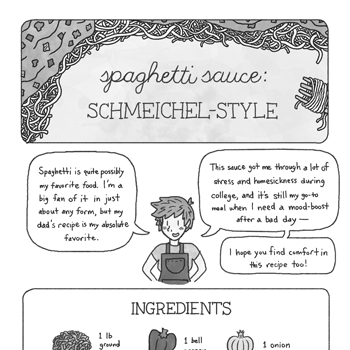 spaghetti sauce:
SCHMEICHEL-STYLE
Spaghetti is quite possibly
my favorite food. I'm a
big fan of it in just
about any form, but my
dad's recipe is my absolute
favorite.
This sauce got me through a lot of
stress and homesickness during
college, and it's still my go-to
meal when I need a mood-boost
after a bad day —
I hope you find comfort in
this recipe too!
INGREDIENTS
1 lb
ground
1 bell
1 onion